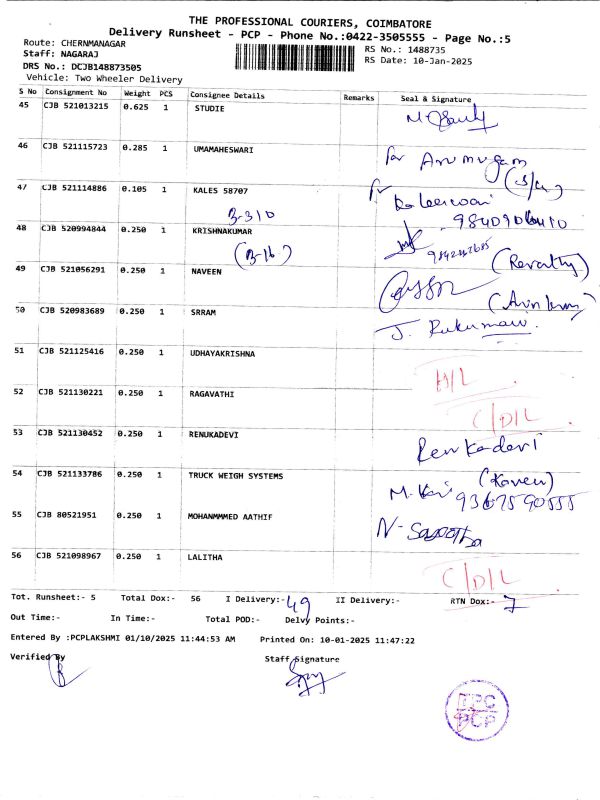 THE PROFESSIONAL COURIERS, COIMBATORE
Delivery Runsheet - PCP - Phone No.:0422-3505555 - Page No.:5
Route: CHERNMANAGAR
RS No.: 1488735
Staff: NAGARAJ
RS Date: 10-Jan-2025
DRS No.: DCJB148873505
Vehicle: Two Wheeler Delivery
S No Consignment No Weight PCS Consignee Details Remarks Seal & Signature
45 CJB 521013215 0.625 1 STUDIE
46 CJB 521115723 0.285 1 UMAMAHESWARI
for Arumugam
47 CJB 521114886 0.105 1 KALES 58707
B-310
48 CJB 520994844 0.250 1 KRISHNAKUMAR
(B-16)
(Revathy)
49 CJB 521056291 0.250 1 NAVEEN
50 CJB 520983689 0.250 1 SRRAM
J. Rukumani
51 CJB 521125416 0.250 1 UDHAYAKRISHNA
H/L
52 CJB 521130221 0.250 1 RAGAVATHI
C/D/L
53 CJB 521130452 0.250 1 RENUKADEVI
Renukadevi
54 CJB 521133786 0.250 1 TRUCK WEIGH SYSTEMS
9367590555
55 CJB 80521951 0.250 1 MOHANMMMED AATHIF
56 CJB 521098967 0.250 1 LALITHA
C/D/L
Tot. Runsheet:- 5 Total Dox:- 56 I Delivery:- 49 II Delivery:- RTN Dox:- 7
Out Time:- In Time:- Total POD:- Delvy Points:-
Entered By :PCPLAKSHMI 01/10/2025 11:44:53 AM Printed On: 10-01-2025 11:47:22
Verified By Staff Signature
PCP